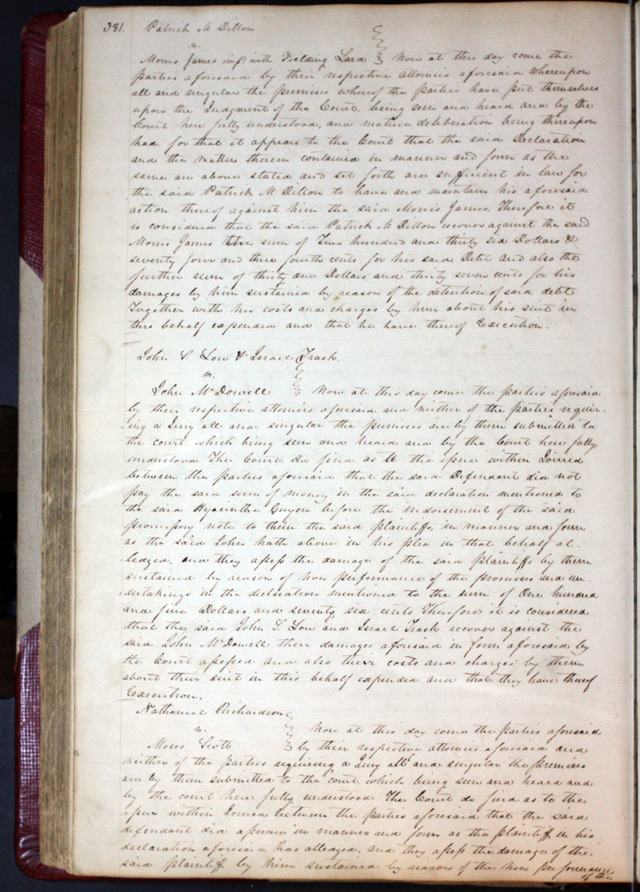 381. Patrick M Dillon
vs.
Morris James imp. with Fielding Lard Now at this day come the
parties aforesaid by their respective attornies aforesaid whereupon
all and singular the premises whereof the parties have put themselves
upon the Judgment of the Court, being seen and heard and by the
Court here fully understood, and mature deliberation being thereupon
had for that it appears to the Court that the said Declaration
and the matters therein contained in manner and form as the
same are above stated and set forth are sufficient in law for
the said Patrick M Dillon to have and maintain his aforesaid
action thereof against him the said Morris James. Therefore it
is considered that the said Patrick M Dillon recover against the said
Morris James the sum of Two hundred and thirty six Dollars &
seventy four and three fourths cents for his said Debt and also the
further sum of thirty one Dollars and thirty seven cents for his
damages by him sustained by reason of the detention of said debt
Together with his costs and charges by him about his suit in
this behalf expended and that he have thereof Execution.
John S. Low & Israel Trash.
vs.
John McDowell Now at this day come the parties aforesaid
by their respective attornies aforesaid and neither of the parties requir-
ing a Jury all and singular the premises are by them submitted to
the court which being seen and heard and by the Court here fully
understood The Court do find as to the issue within Joined
between the parties aforesaid that the said Defendant did not
pay the said sum of money in the said declaration mentioned to
the said Hyacinthe Guyon before the indorsement of the said
promissory note to them the said plaintiffs, in manner and form
as the said John hath above in his plea in that behalf al-
ledged, and they assess the damage of the said plaintiffs by them
sustained by reason of non performance of the promises and un-
dertakings in the declaration mentioned to the sum of One hundred
and five Dollars and seventy six cents Therefore it is considered
that the said John S. Low and Israel Trash recover against the
said John McDowell their damages aforesaid in form aforesaid by
the Court assessed and also their costs and charges by them
about their suit in this behalf expended and that they have thereof
Execution.
Nathaniel Richardson
vs. Now at this day come the parties aforesaid
Moses Scott by their respective attornies aforesaid and
neither of the parties requiring a Jury all and singular the premises
are by them submitted to the court which being seen and heard and
by the court here fully understood The Court do find as to the
issue within Joined between the parties aforesaid that the said
defendant did assume in manner and form as the plaintiff in his
declaration aforesaid has alledged, and they assess the damages of the
said plaintiff by him sustained by reason of the non performance
of the